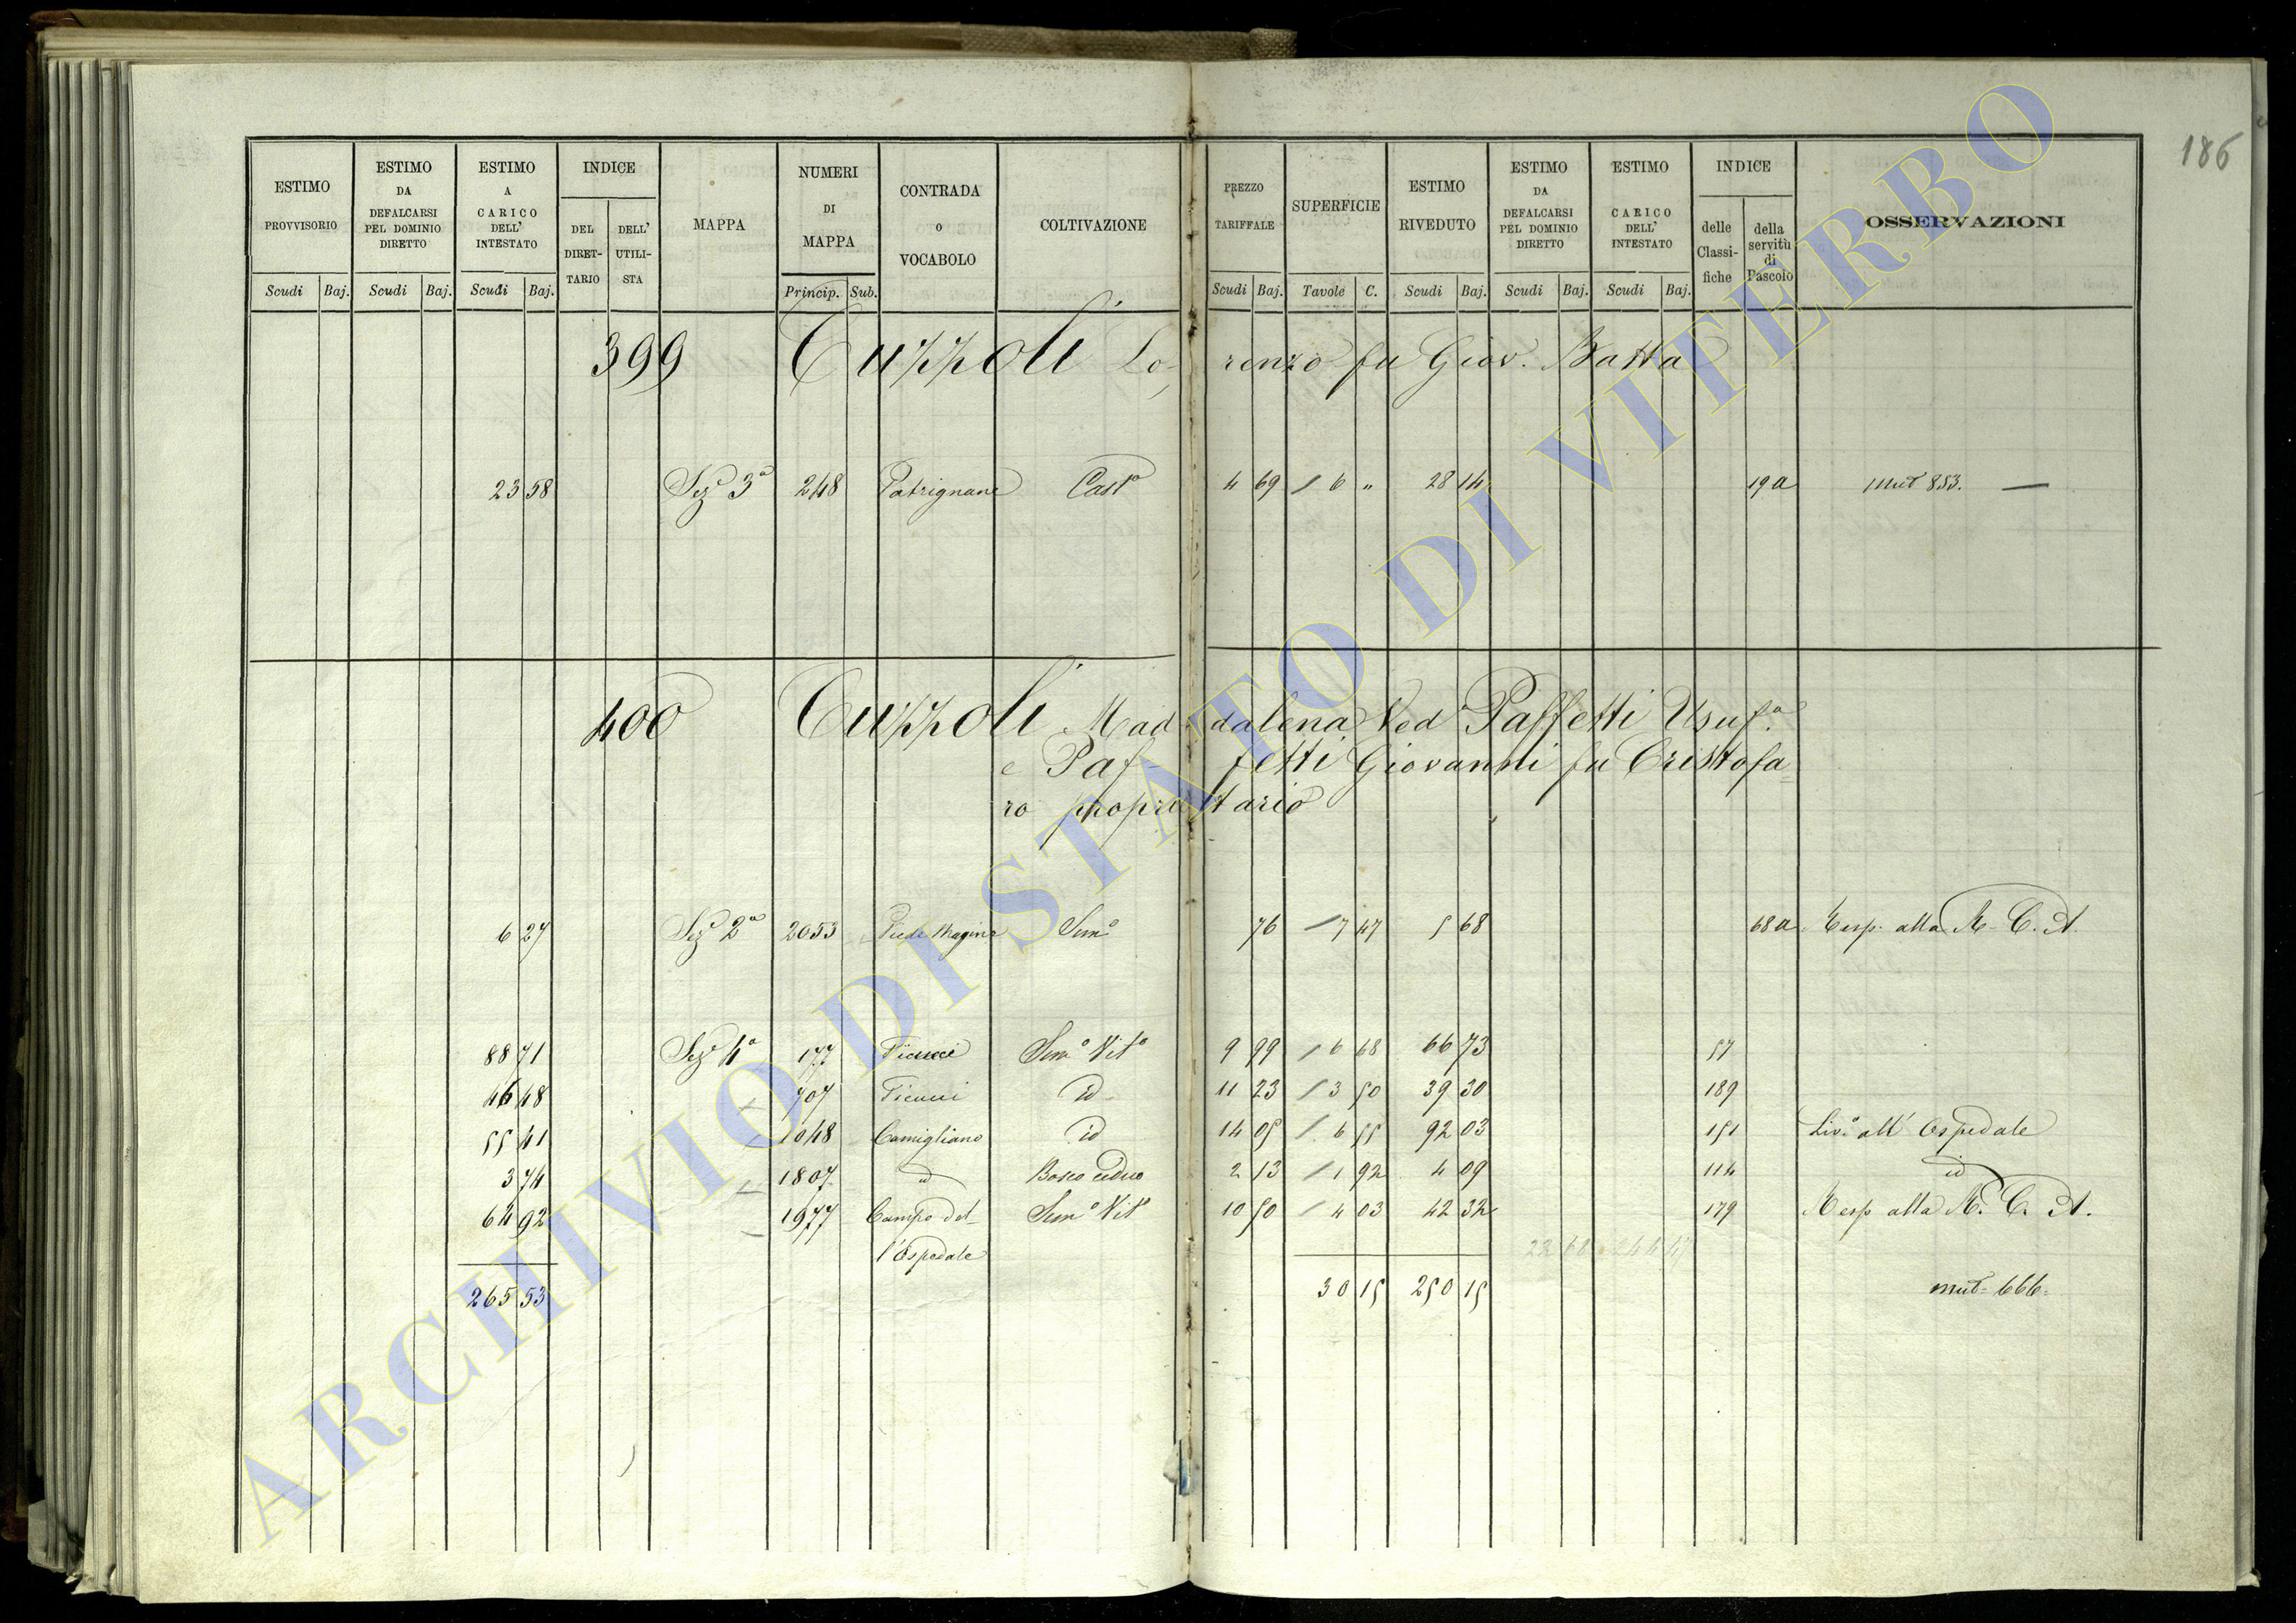 186
ESTIMO PROVVISORIO Scudi Baj.
ESTIMO DA DEFALCARSI PEL DOMINIO DIRETTO Scudi Baj.
ESTIMO A CARICO DELL' INTESTATO Scudi Baj.
INDICE DEL DIRET-TARIO DELL' UTILI-STA
MAPPA
NUMERI DI MAPPA Princip. Sub.
CONTRADA o VOCABOLO
COLTIVAZIONE
PREZZO TARIFFALE Scudi Baj.
SUPERFICIE Tavole C.
ESTIMO RIVEDUTO Scudi Baj.
ESTIMO DA DEFALCARSI PEL DOMINIO DIRETTO Scudi Baj.
ESTIMO A CARICO DELL' INTESTATO Scudi Baj.
INDICE delle Classi-fiche della servitù di Pascolo
OSSERVAZIONI
399 Cuppoli Lo- renzo fu Giov. Batta
23 58 Sez.e 3a 248 Patrignane Casto 4 69 6 " 28 14 19a mut 853. —
400 Cuppoli Mad- dalena Ved Paffetti Usufa
e Paf- fetti Giovanni fu Cristofa
ro proprietario
6 27 Sez.e 2a 2053 Semo 76 7 47 5 68 68a Resp. alla R. C. A.
88 71 Sez.e 4a 177 Ficucci Semo Vito 9 99 6 68 66 73 57
46 48 707 Ficucci id 11 23 3 50 39 30 189
55 41 1048 Camigliano id 14 05 6 55 92 03 151 Livo all' Ospedale
3 74 1807 id Bosco ceduo 2 13 1 92 4 09 114 id
64 92 1977 Campo del- Semo Vito 10 50 4 03 42 32 179 Resp alla R. C. A.
l'Ospedale
265 53 30 15 250 15 mut = 666 =
ARCHIVIO DI STATO DI VITERBO